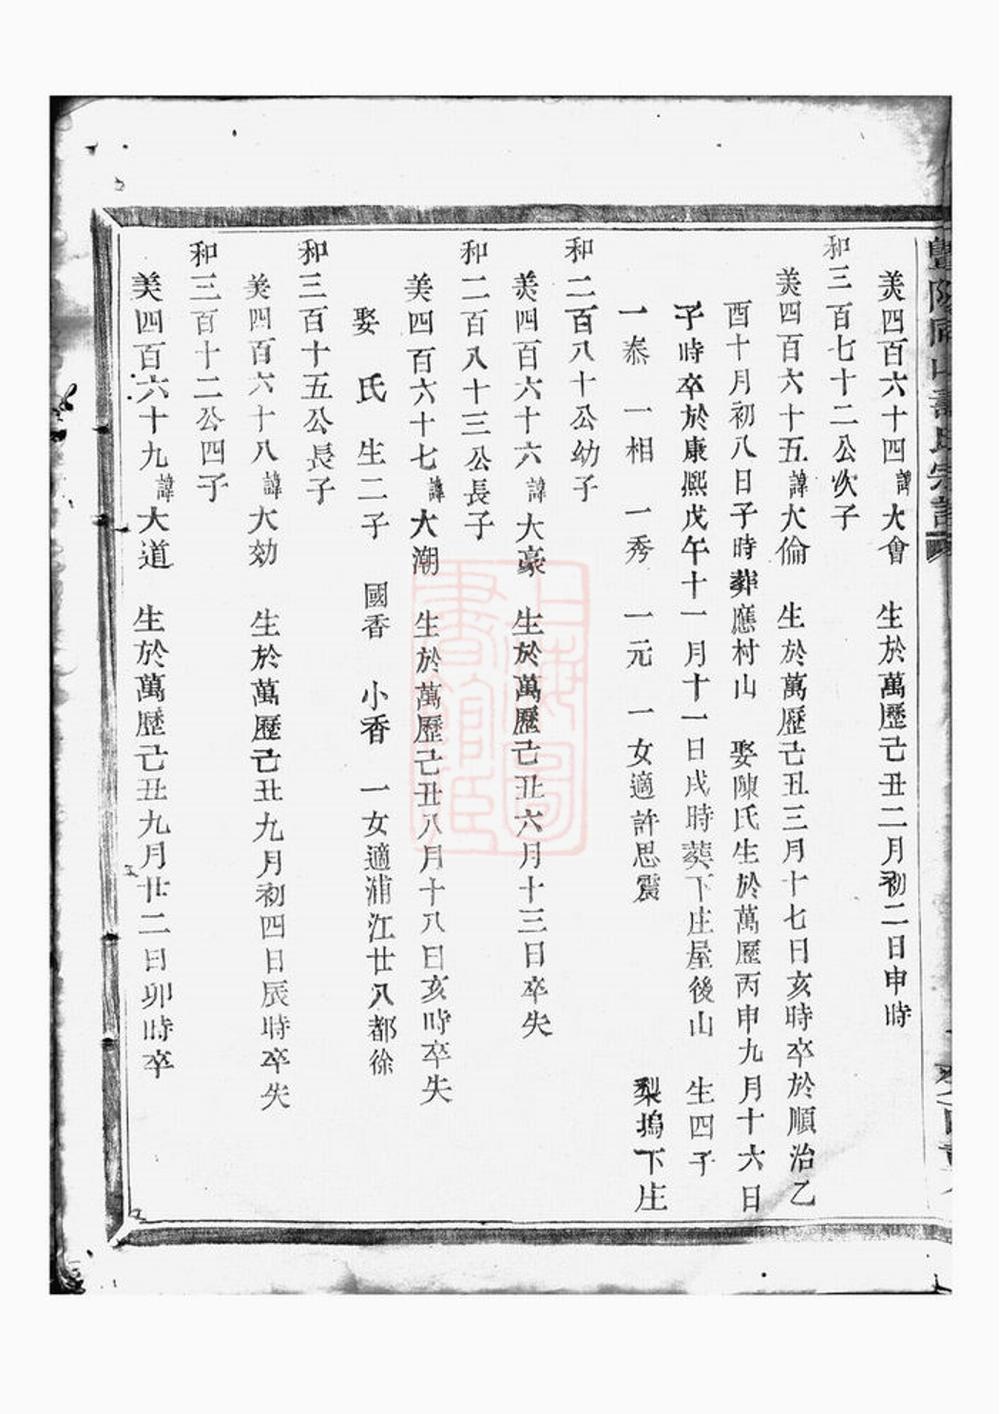 美四百六十四諱大會　生於萬歷己丑二月初二日申時
和三百七十二公次子
美四百六十五諱大倫　生於萬歷己丑三月十七日亥時卒於順治乙
酉十月初八日子時葬應村山　娶陳氏生於萬歷丙申九月十六日
子時卒於康熙戊午十一月十一日戌時葬下庄屋後山　生四子
一泰　一相　一秀　一元　一女適許思震　　　梨塢下庄
和二百八十公幼子
美四百六十六諱大豪　生於萬歷己丑六月十三日卒失
和二百八十三公長子
美四百六十七諱大潮　生於萬歷己丑八月十八日亥時卒失
娶　氏　生二子　國香　小香　一女適浦江廿八都徐
和三百十五公長子
美四百六十八諱大効　生於萬歷己丑九月初四日辰時卒失
和三百十二公四子
美四百六十九諱大道　生於萬歷己丑九月廿二日卯時卒
上海圖書館藏